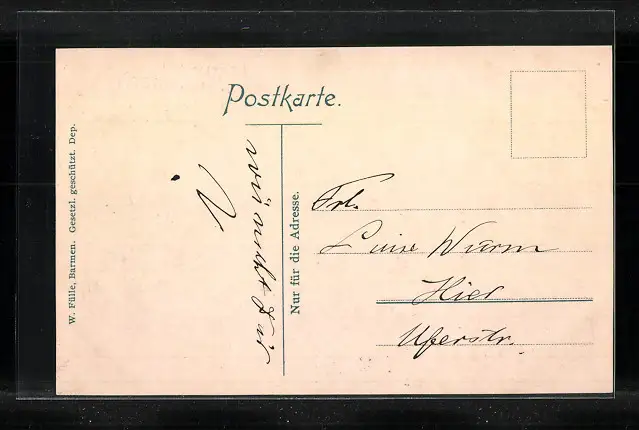 Postkarte.
W. Fülle, Barmen. Gesetzl. geschützt. Dep.
Nur für die Adresse.
Frl.
Luise Wurm
Hier
Uferstr.
wünscht Dir